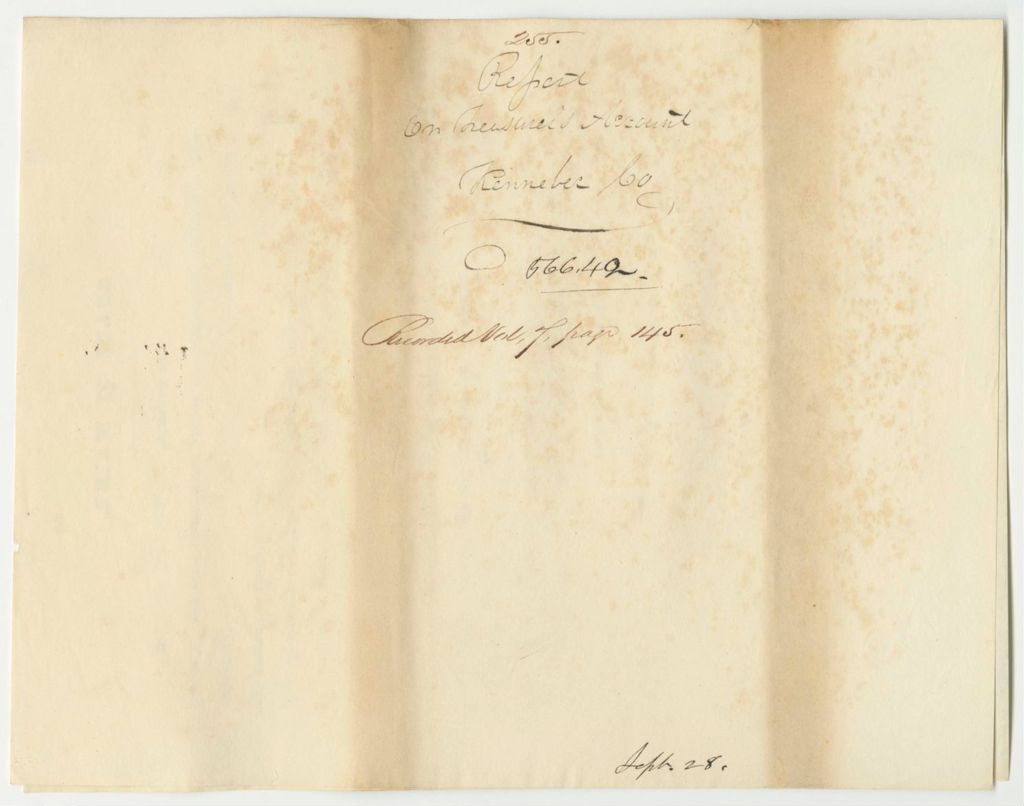 255.
Report
On Treasurer's Account
Kennebec Co,
566.42.
Recorded Vol, 7, page 145.
Sept. 28.